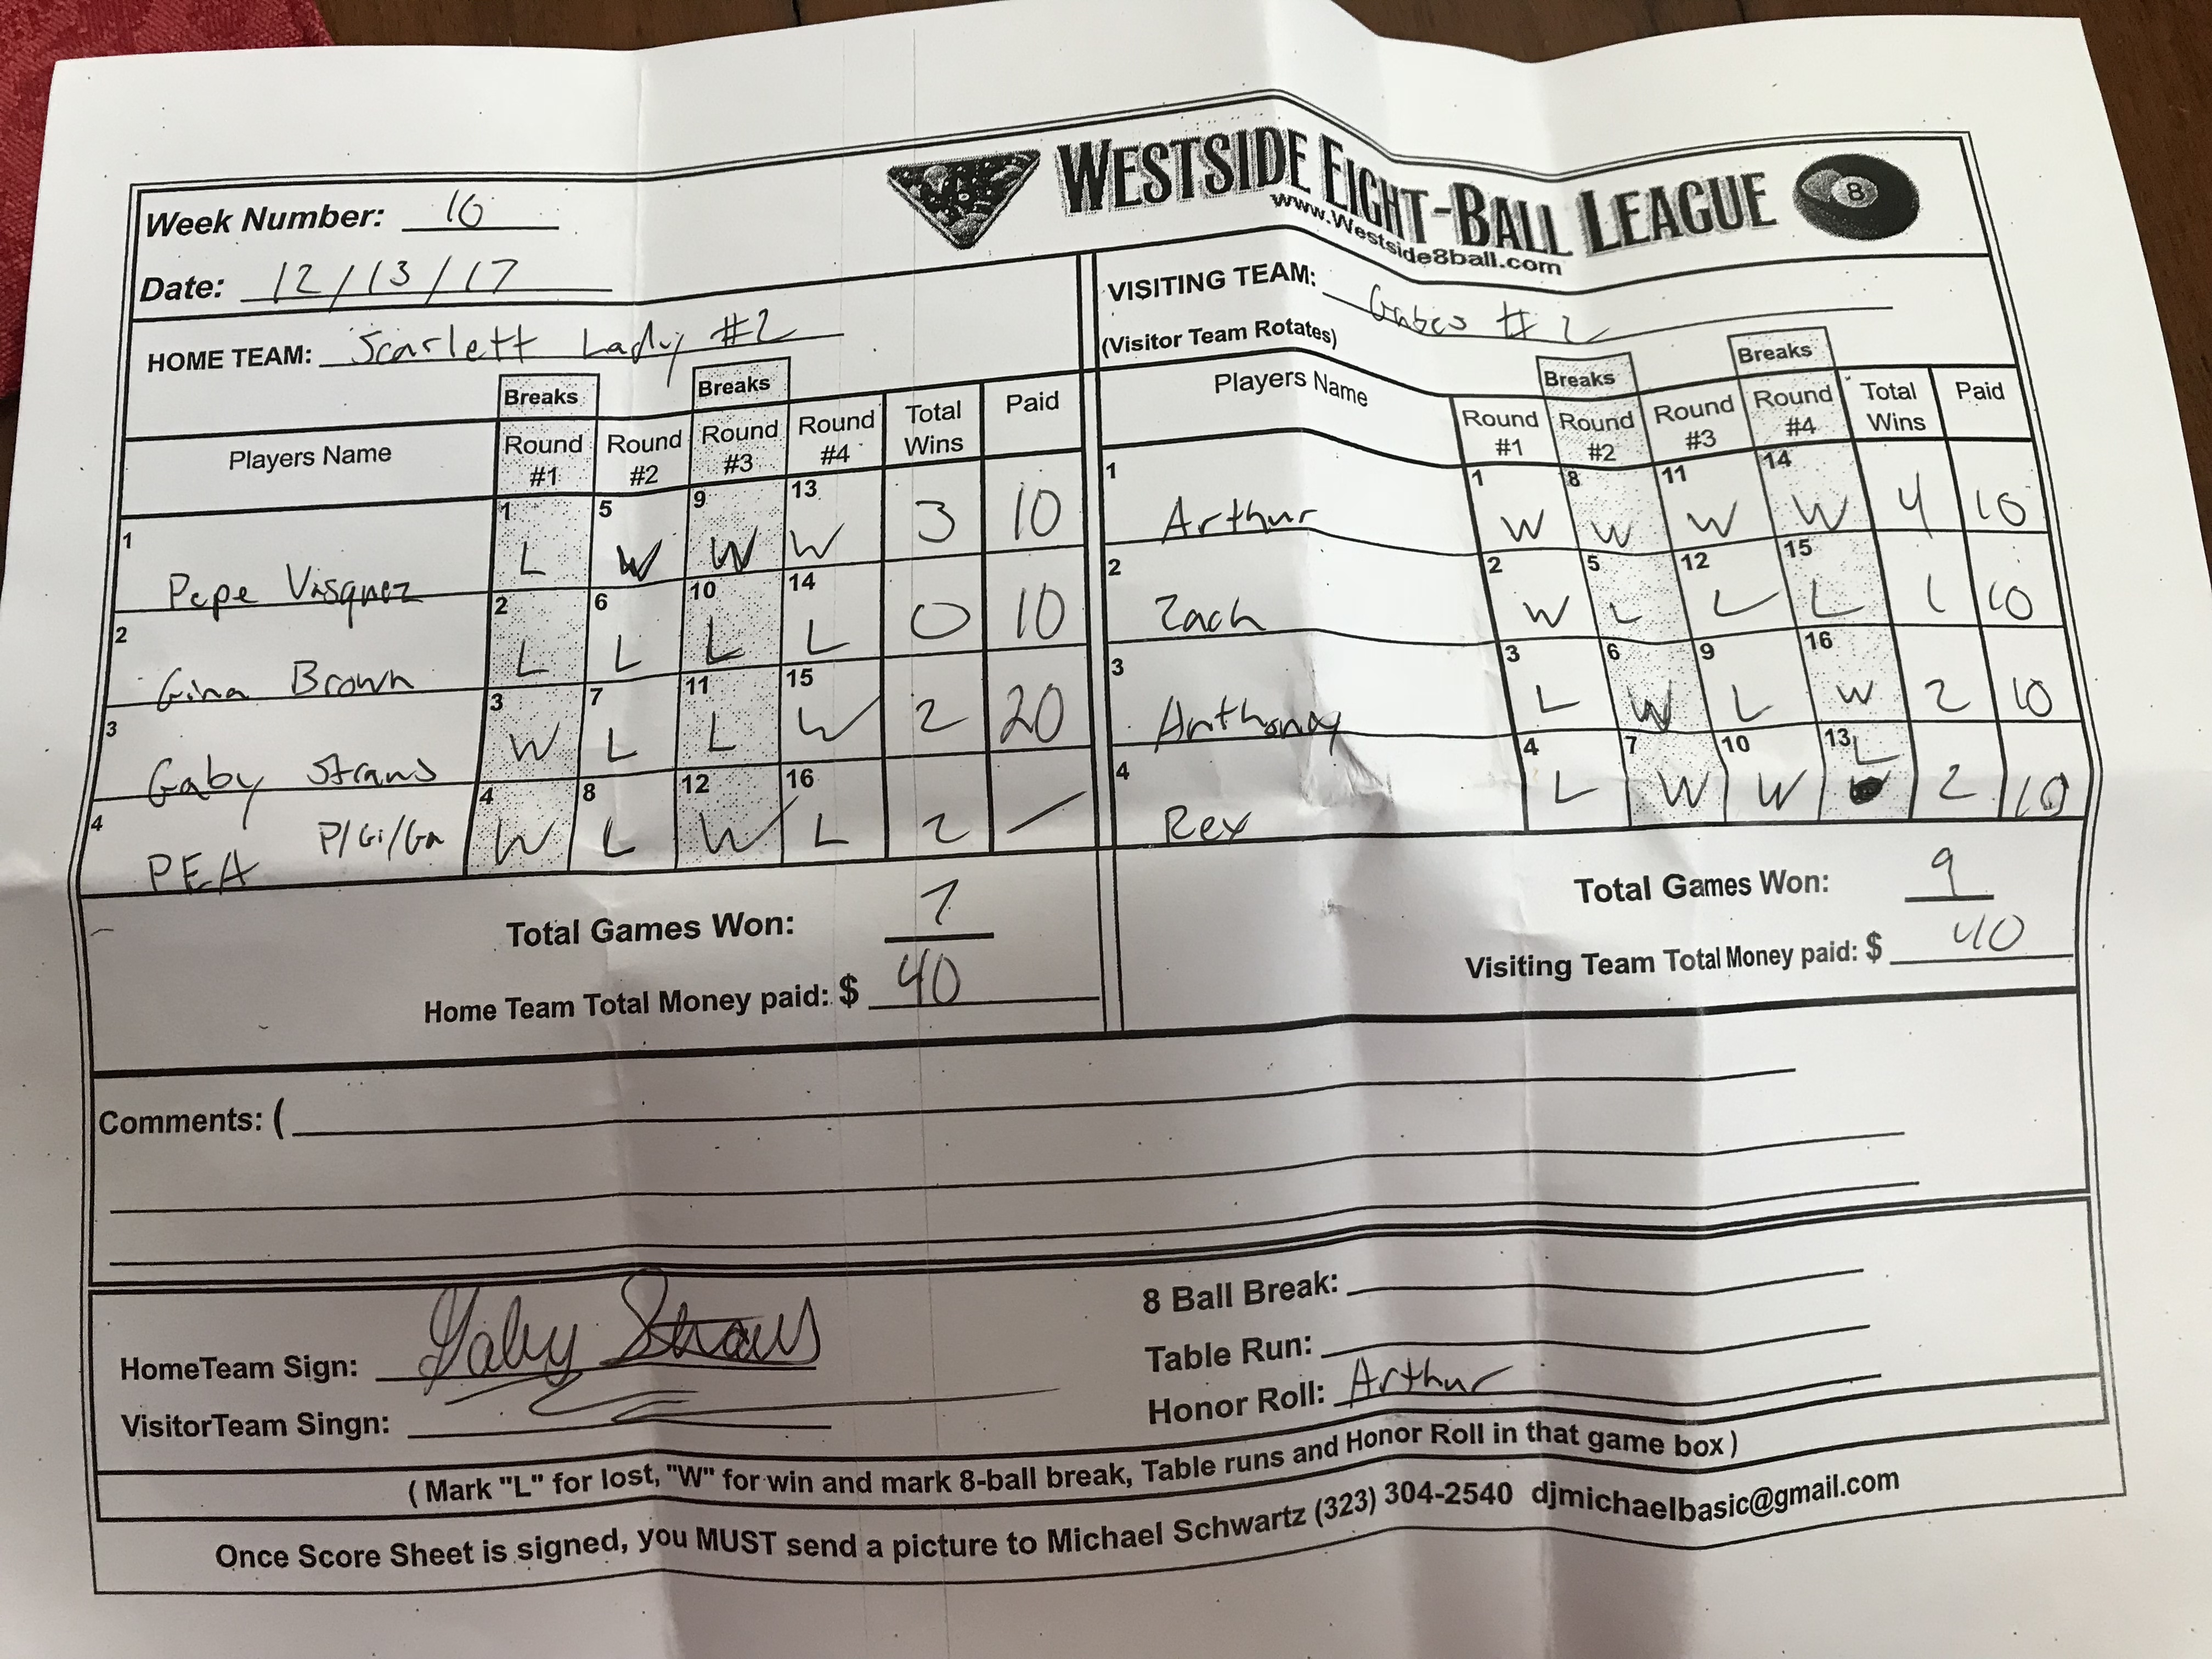 WESTSIDE EIGHT-BALL LEAGUE
8
www.Westside8ball.com
Week Number: 10
Date: 12/13/17
HOME TEAM: Scarlett Lady #2
VISITING TEAM: Gabes #2
(Visitor Team Rotates)
Breaks Breaks
Players Name Round #1 Round #2 Round #3 Round #4 Total Wins Paid
1 Pepe Vasquez 1 L 5 W 9 W 13 W 3 10
2 Gina Brown 2 L 6 L 10 L 14 L 0 10
3 Gaby Straus 3 W 7 L 11 L 15 W 2 20
4 PEA P/Gi/Ga 4 W 8 L 12 W 16 L 2 /
Total Games Won: 7
Home Team Total Money paid: $ 40
Breaks Breaks
Players Name Round #1 Round #2 Round #3 Round #4 Total Wins Paid
1 Arthur 1 W 8 W 11 W 14 W 4 10
2 Zach 2 W 5 L 12 L 15 L 1 10
3 Anthony 3 L 6 W 9 L 16 W 2 10
4 Rex 4 L 7 W 10 W 13 L 2 10
Total Games Won: 9
Visiting Team Total Money paid: $ 40
Comments: (
HomeTeam Sign: Gaby Straus
VisitorTeam Singn:
8 Ball Break:
Table Run:
Honor Roll: Arthur
( Mark "L" for lost, "W" for win and mark 8-ball break, Table runs and Honor Roll in that game box )
Once Score Sheet is signed, you MUST send a picture to Michael Schwartz (323) 304-2540 djmichaelbasic@gmail.com